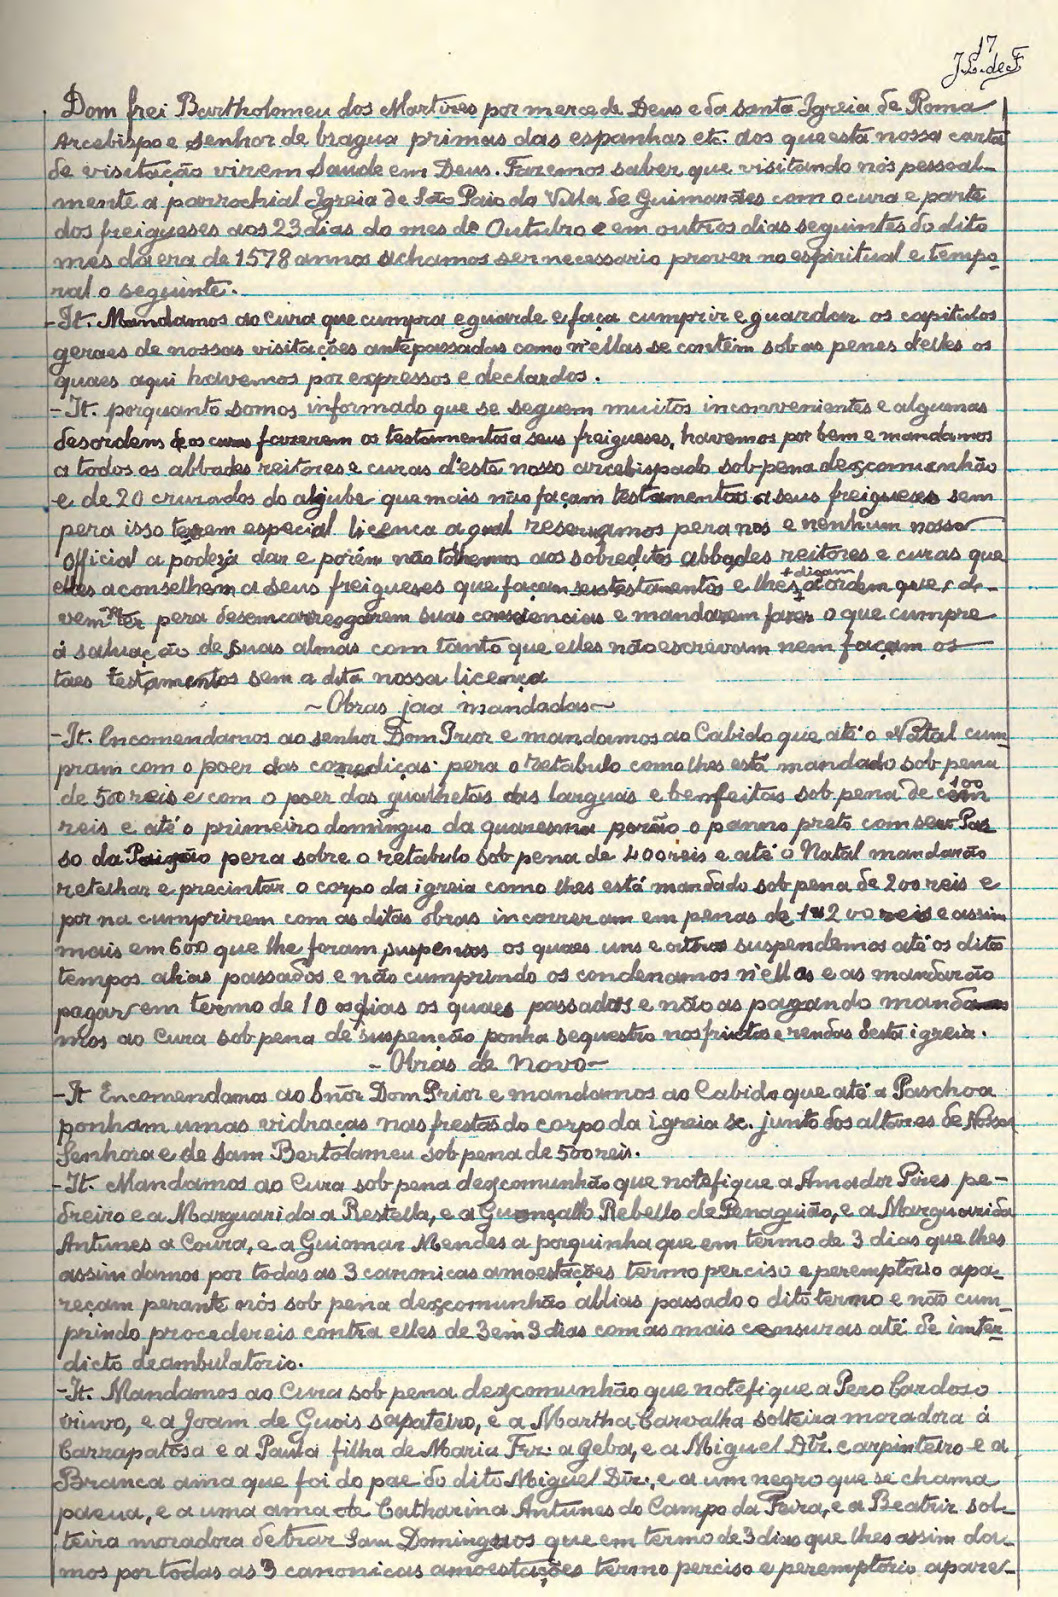 17
J.L. de F
Dom frei Bartholomeu dos Martires por merce de Deus e da santa Igreia de Roma
Arcebispo e senhor de bragua primas das espanhas etc. aos que esta nossa carta
de visitação virem saude em Deus. Fazemos saber que visitando nós pessoal-
mente a parrochial Igreia de São Paio da Villa de Guimarães com o cura e parte
dos freigueses aos 23 dias do mes de Outubro e em outros dias seguintes do dito
mes da era de 1578 annos achamos ser necessario prover no espiritual e tempo-
ral o seguinte.
-It. Mandamos ao cura que cumpra e guarde e faça cumprir e guardar os capitulos
geraes de nossas visitações antepassadas como n'ellas se contem sob as penes d'elles os
quaes aqui havemos por expressos e declardos.
-It. porquanto somos informado que se seguem muitos inconvenientes e algumas
desordens de os curas fazerem os testamentos a seus freigueses, havemos por bem e mandamos
a todos os abbades reitores e curas d'este nosso arcebispado sob pena descomunhão
e de 20 cruzados do aljube que mais não façam testamentos a seus freigueses sem
pera isso terem especial licenca a qual reservamos pera nos e nenhum nosso
official a poderá dar e porém não tolhemos aos sobreditos abbades reitores e curas que
elles aconselhem a seus freigueses que façam seus testamentos e lhes +digam a ordem que de-
vem ter pera desemcarregarem suas consciencias e mandarem fazer o que cumpre
á salvação de suas almas com tanto que elles não escrevam nem façam os
taes testamentos sem a dita nossa licença
~Obras jaa mandadas~
-It. Encomendamos ao senhor Dom Prior e mandamos ao Cabido que até o Natal cum-
pram com o poer das corrediças pera o retabulo como lhes está mandado sob pena
de 500 reis e com o poer das gualhetas das larguas e bemfeitas sob pena de cem 100
reis e até o primeiro dominguo da quaresma porão o panno preto com seu Pas-
so da Paixão pera sobre o retabulo sob pena de 400 reis e até o Natal mandarão
retelhar e precintar o corpo da igreia como lhes está mandado sob pena de 200 reis e
por na cumprirem com as ditas obras incorreram em penas de 1200 reis e assim
mais em 600 que lhe foram suspensos os quaes uns e outros suspendemos até os ditos
tempos alias passados e não cumprindo os condenamos n'ellas e as mandarão
pagar em termo de 10 dias os quaes passados e não as pagando manda-
mos ao Cura sob pena de suspenção ponha sequestro nos fructos e rendas desta igreia.
-Obras de novo-
-It Encomendamos ao Snõr Dom Prior e mandamos ao Cabido que até a Paschoa
ponham umas vidraças nas frestas do corpo da igreia sc. junto dos altares de Nossa
Senhora e de Sam Bertolameu sob pena de 500 reis.
-It. Mandamos ao Cura sob pena descomunhão que notefique a Amador Pires pe-
dreiro e a Marguarida a Restella, e a Guonçallo Rebello de Penaguião, e a Marguarida
Antunes a Coura, e a Guiomar Mendes a porquinha que em termo de 3 dias que lhes
assim damos por todas as 3 canonicas amoestações termo perciso e peremptorio apa-
reçam perante nós sob pena descomunhão allias passado o dito termo e não cum-
prindo procedereis contra elles de 3 em 3 dias com as mais censuras até de inter-
dicto deambulatorio.
-It. Mandamos ao Cura sob pena descomunhão que notefique a Pero Cardoso
viuvo, e a Joam de Guois sapateiro, e a Martha Carvalha solteira moradora á
Carrapatosa e a Paula filha de Maria Frz: a Geba, e a Miguel Diz. carpinteiro e a
Branca ama que foi do pae do dito Miguel Diz., e a um negro que se chama
pacua, e a uma ama de Catharina Antunes do Campo da Feira, e a Beatriz sol-
teira moradora detraz Sam Dominguos que em termo de 3 dias que lhes assim da-
mos por todas as 3 canonicas amoestações termo perciso e peremptorio apare-